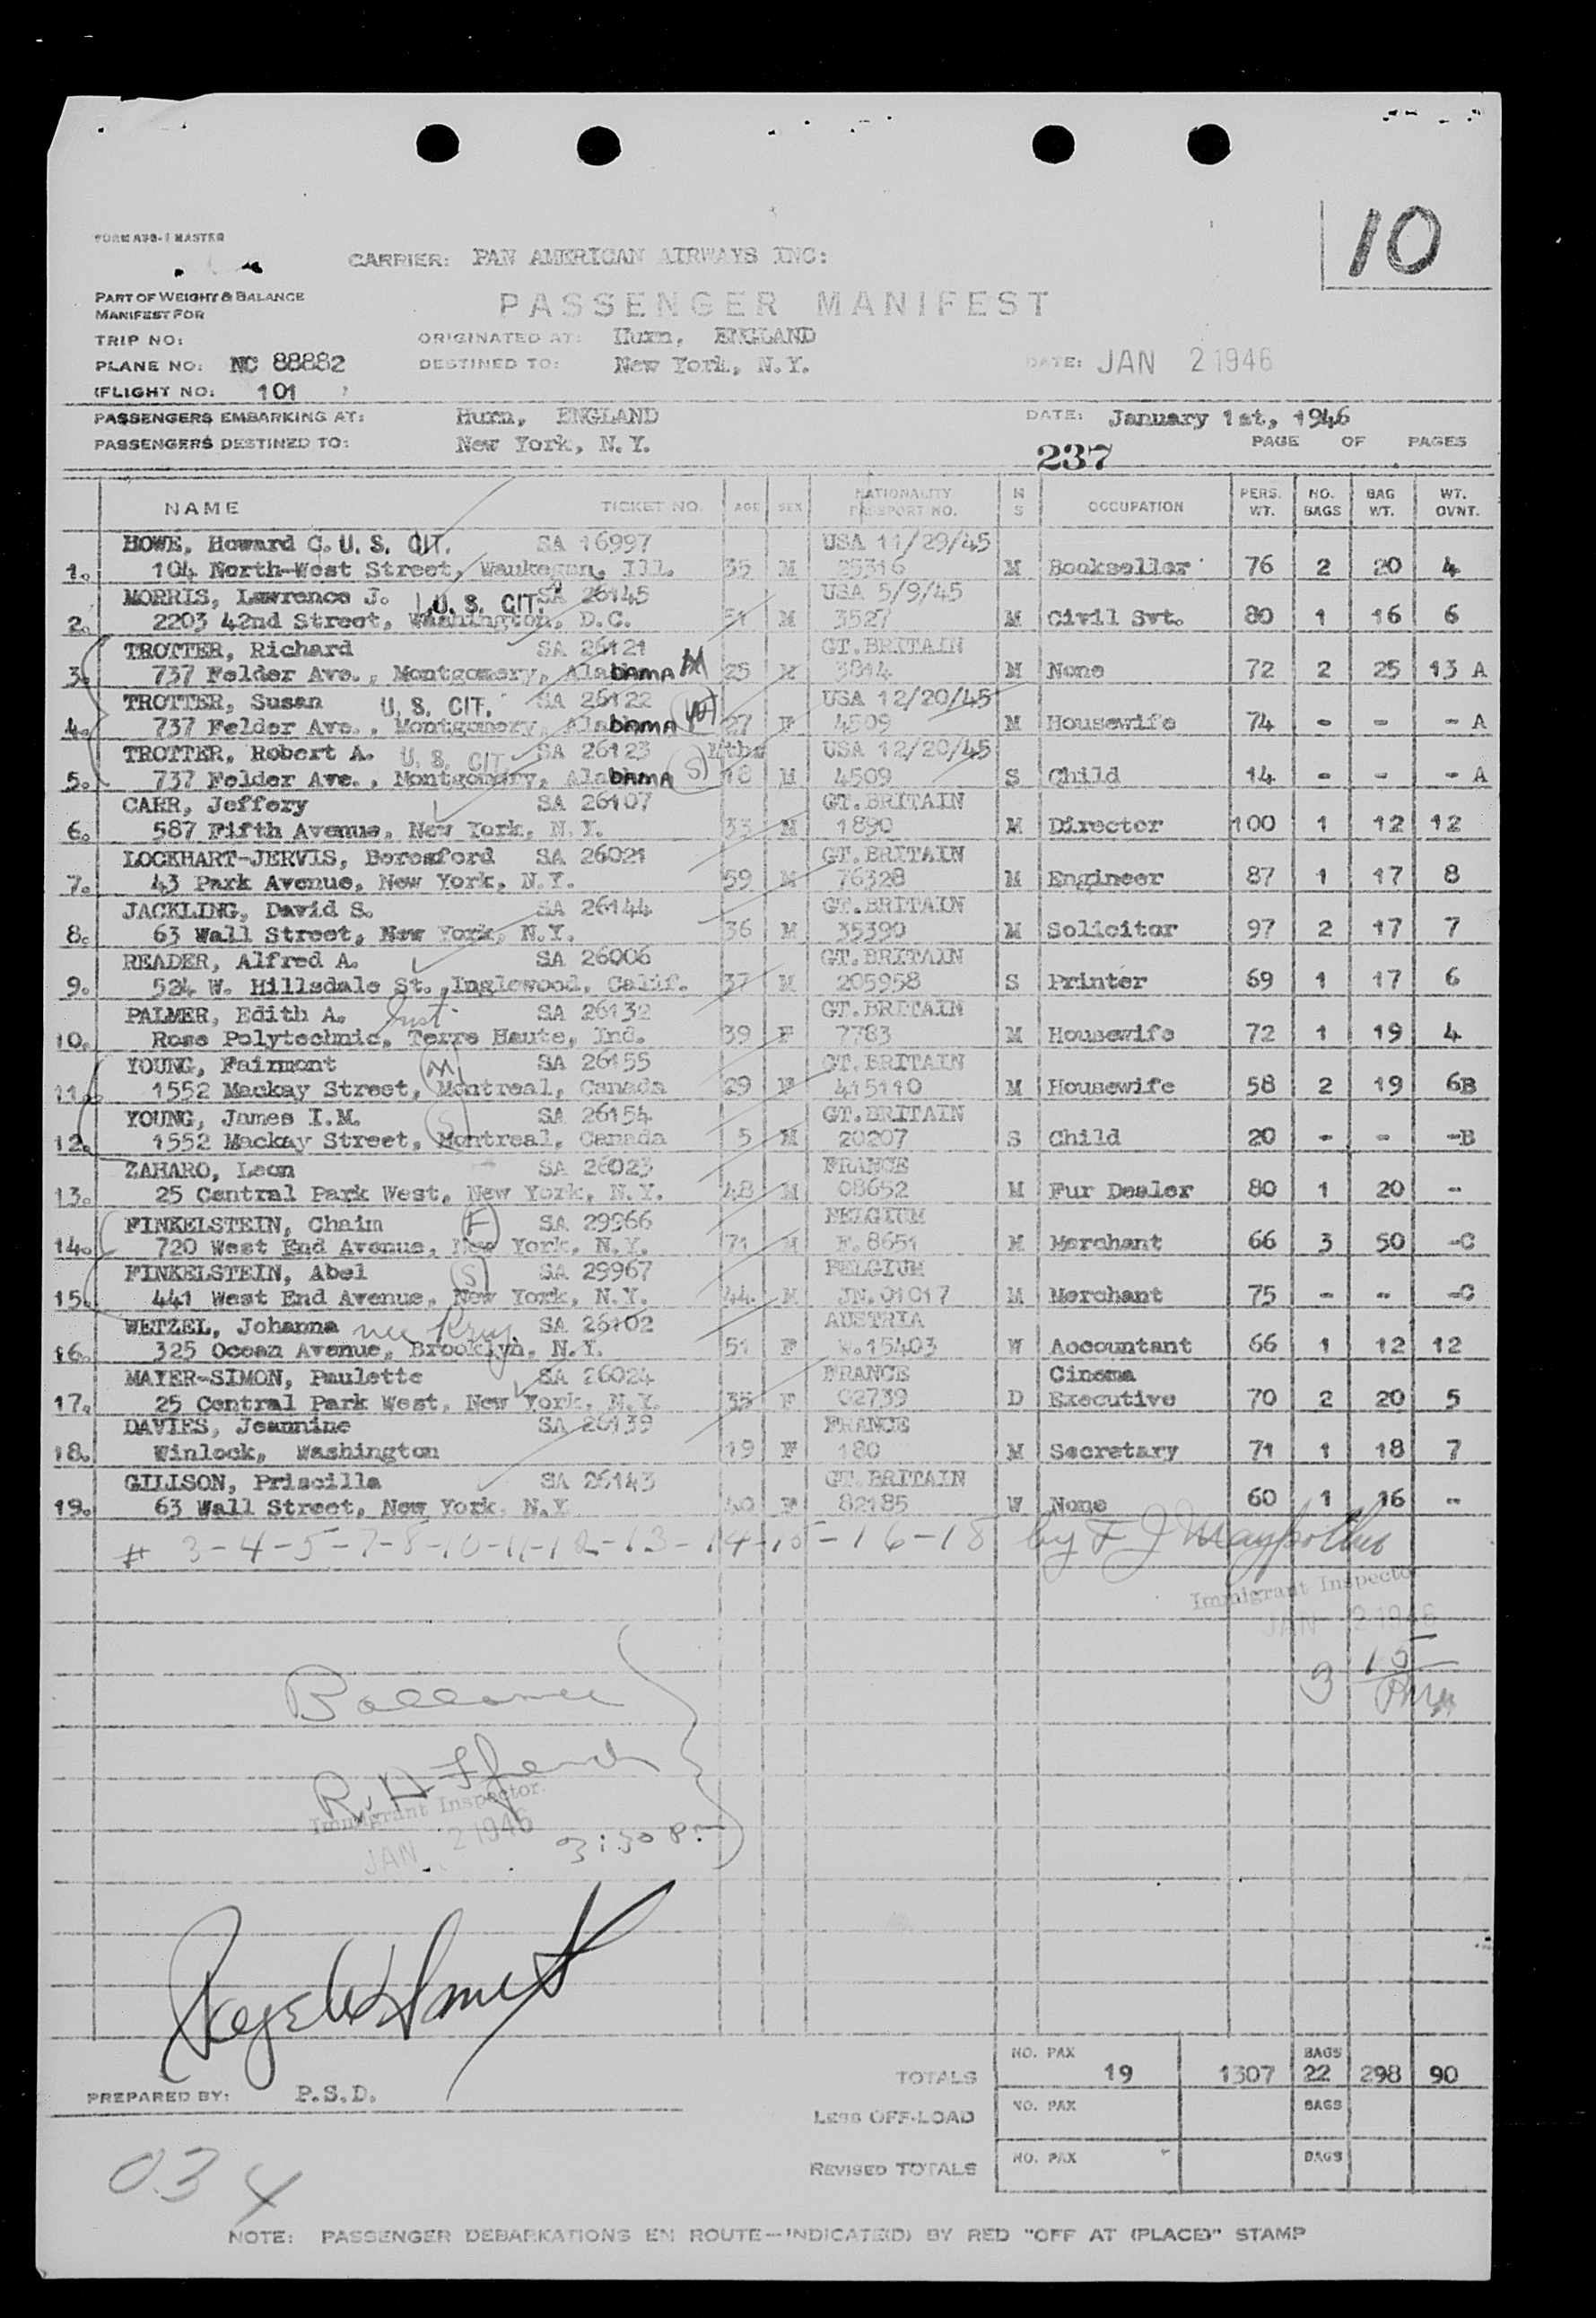 FORM ATS-1 MASTER
10
CARRIER: PAN AMERICAN AIRWAYS INC:
PART OF WEIGHT & BALANCE
MANIFEST FOR
PASSENGER MANIFEST
TRIP NO:
ORIGINATED AT: Hurn, ENGLAND
PLANE NO: NC 88882
DESTINED TO: New York, N.Y.
DATE: JAN 2 1946
(FLIGHT NO: 101 )
PASSENGERS EMBARKING AT: Hurn, ENGLAND
DATE: January 1st, 1946
PASSENGERS DESTINED TO: New York, N.Y.
PAGE OF PAGES
237
NAME TICKET NO. AGE SEX NATIONALITY PASSPORT NO. M S OCCUPATION PERS. WT. NO. BAGS BAG WT. WT. OVNT.
HOWE, Howard C. U. S. CIT. SA 16997 USA 11/29/45
1. 104 North-West Street, Waukegan, Ill. 35 M 25316 M Bookseller 76 2 20 4
MORRIS, Lawrence J. U. S. CIT. SA 26145 USA 5/9/45
2. 2203 42nd Street, Washington, D.C. 51 M 3527 M Civil Svt. 80 1 16 6
TROTTER, Richard SA 26121 GT.BRITAIN
3. 737 Felder Ave., Montgomery, AlaBAMA M 25 M 3814 M None 72 2 25 13 A
TROTTER, Susan U. S. CIT. SA 26122 USA 12/20/45
4. 737 Felder Ave., Montgomery, AlaBAMA 27 F 4509 M Housewife 74 - - - A
TROTTER, Robert A. U. S. CIT. SA 26123 Mths USA 12/20/45
5. 737 Felder Ave., Montgomery, AlaBAMA S 18 M 4509 S Child 14 - - - A
CARR, Jeffery SA 26107 GT.BRITAIN
6. 587 Fifth Avenue, New York, N.Y. 33 M 1890 M Director 100 1 12 12
LOCKHART-JERVIS, Beresford SA 26021 GT.BRITAIN
7. 43 Park Avenue, New York, N.Y. 59 M 76328 M Engineer 87 1 17 8
JACKLING, David S. SA 26144 GT.BRITAIN
8. 63 Wall Street, New York, N.Y. 36 M 35390 M Solicitor 97 2 17 7
READER, Alfred A. SA 26006 GT.BRITAIN
9. 524 W. Hillsdale St., Inglewood, Calif. 37 M 205958 S Printer 69 1 17 6
PALMER, Edith A. Inst. SA 26132 GT.BRITAIN
10. Rose Polytechnic, Terre Haute, Ind. 39 F 7783 M Housewife 72 1 19 4
YOUNG, Fairmont M SA 26155 GT.BRITAIN
11. 1552 Mackay Street, Montreal, Canada 29 F 415110 M Housewife 58 2 19 6B
YOUNG, James I.M. S SA 26154 GT.BRITAIN
12. 1552 Mackay Street, Montreal, Canada 5 M 20207 S Child 20 - - -B
ZAHARO, Leon SA 26023 FRANCE
13. 25 Central Park West, New York, N.Y. 48 M 08652 M Fur Dealer 80 1 20 -
FINKELSTEIN, Chaim F SA 29966 BELGIUM
14. 720 West End Avenue, New York, N.Y. 71 M F.8651 M Merchant 66 3 50 -C
FINKELSTEIN, Abel S SA 29967 BELGIUM
15. 441 West End Avenue, New York, N.Y. 44 M JN.01017 M Merchant 75 - - -C
WETZEL, Johanna nee SA 26102 AUSTRIA
16. 325 Ocean Avenue, Brooklyn, N.Y. 51 F W.15403 W Accountant 66 1 12 12
MAYER-SIMON, Paulette SA 26024 FRANCE Cinema
17. 25 Central Park West, New York, N.Y. 35 F 02739 D Executive 70 2 20 5
DAVIES, Jeannine SA 26139 FRANCE
18. Winlock, Washington 19 F 180 M Secretary 71 1 18 7
GILLSON, Priscilla SA 26143 GT.BRITAIN
19. 63 Wall Street, New York, N.Y. 40 F 82185 W None 60 1 16 -
# 3-4-5-7-8-10-11-12-13-14-15-16-18 by F J
Immigrant Inspector
JAN 2 1946
3 15 pm
Ballance
Immigrant Inspector.
JAN 2 1946
3:30 Pm
TOTALS NO. PAX 19 1307 BAGS 22 298 90
PREPARED BY: P.S.D.
LESS OFF-LOAD NO. PAX BAGS
REVISED TOTALS NO. PAX BAGS
034
NOTE: PASSENGER DEBARKATIONS EN ROUTE—INDICATE(D) BY RED "OFF AT (PLACE)" STAMP